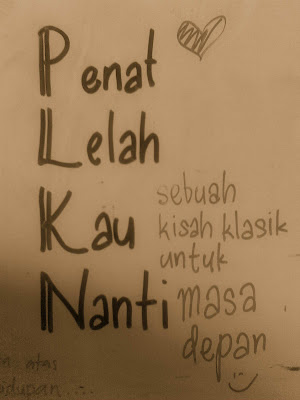 Penat
Lelah
Kau
Nanti
sebuah
kisah klasik
untuk
masa
depan